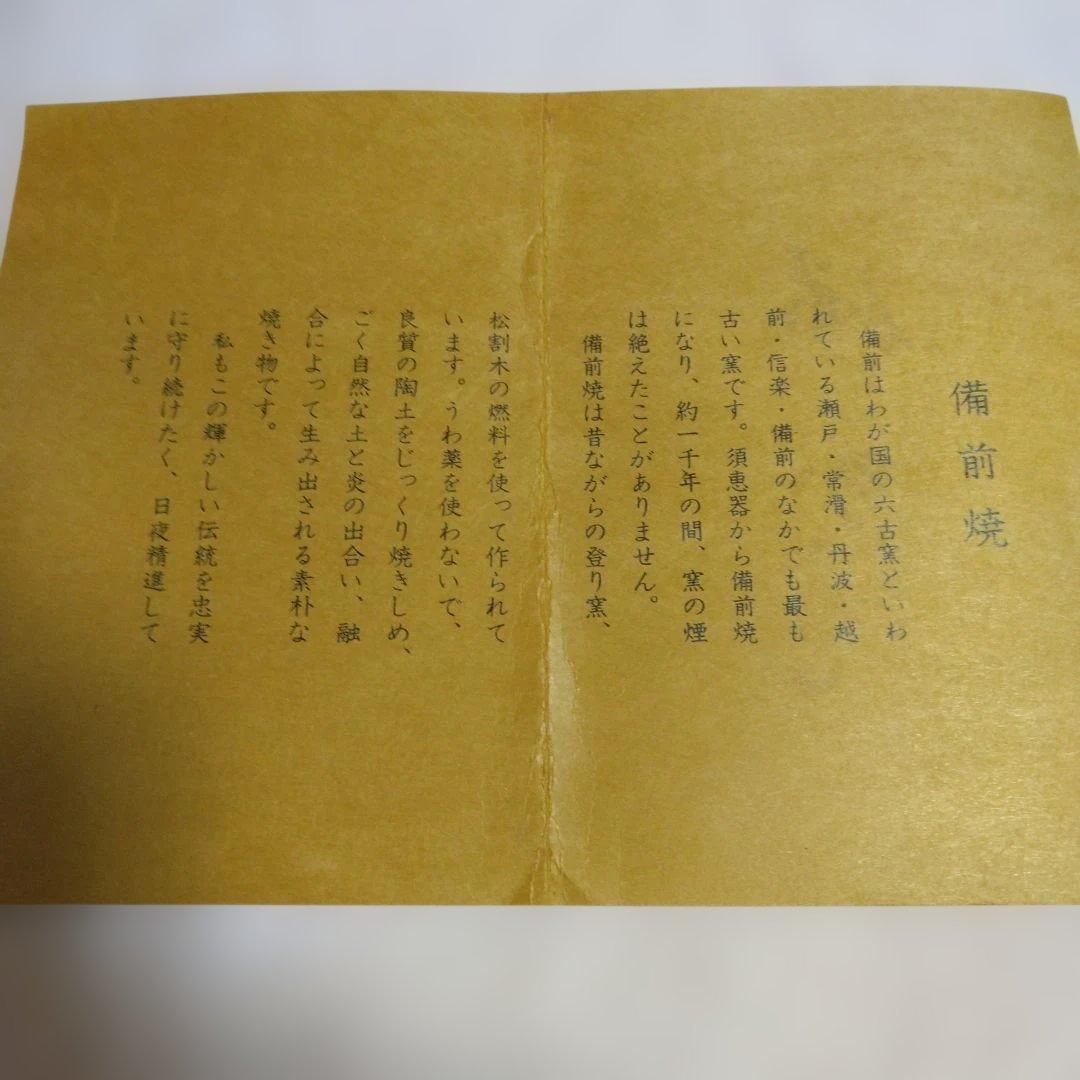 備前焼
備前はわが国の六古窯といわ
れている瀬戸・常滑・丹波・越
前・信楽・備前のなかでも最も
古い窯です。須恵器から備前焼
になり、約一千年の間、窯の煙
は絶えたことがありません。
備前焼は昔ながらの登り窯、
松割木の燃料を使って作られて
います。うわ薬を使わないで、
良質の陶土をじっくり焼きしめ、
ごく自然な土と炎の出合い、融
合によって生み出される素朴な
焼き物です。
私もこの輝かしい伝統を忠実
に守り続けたく、日夜精進して
います。